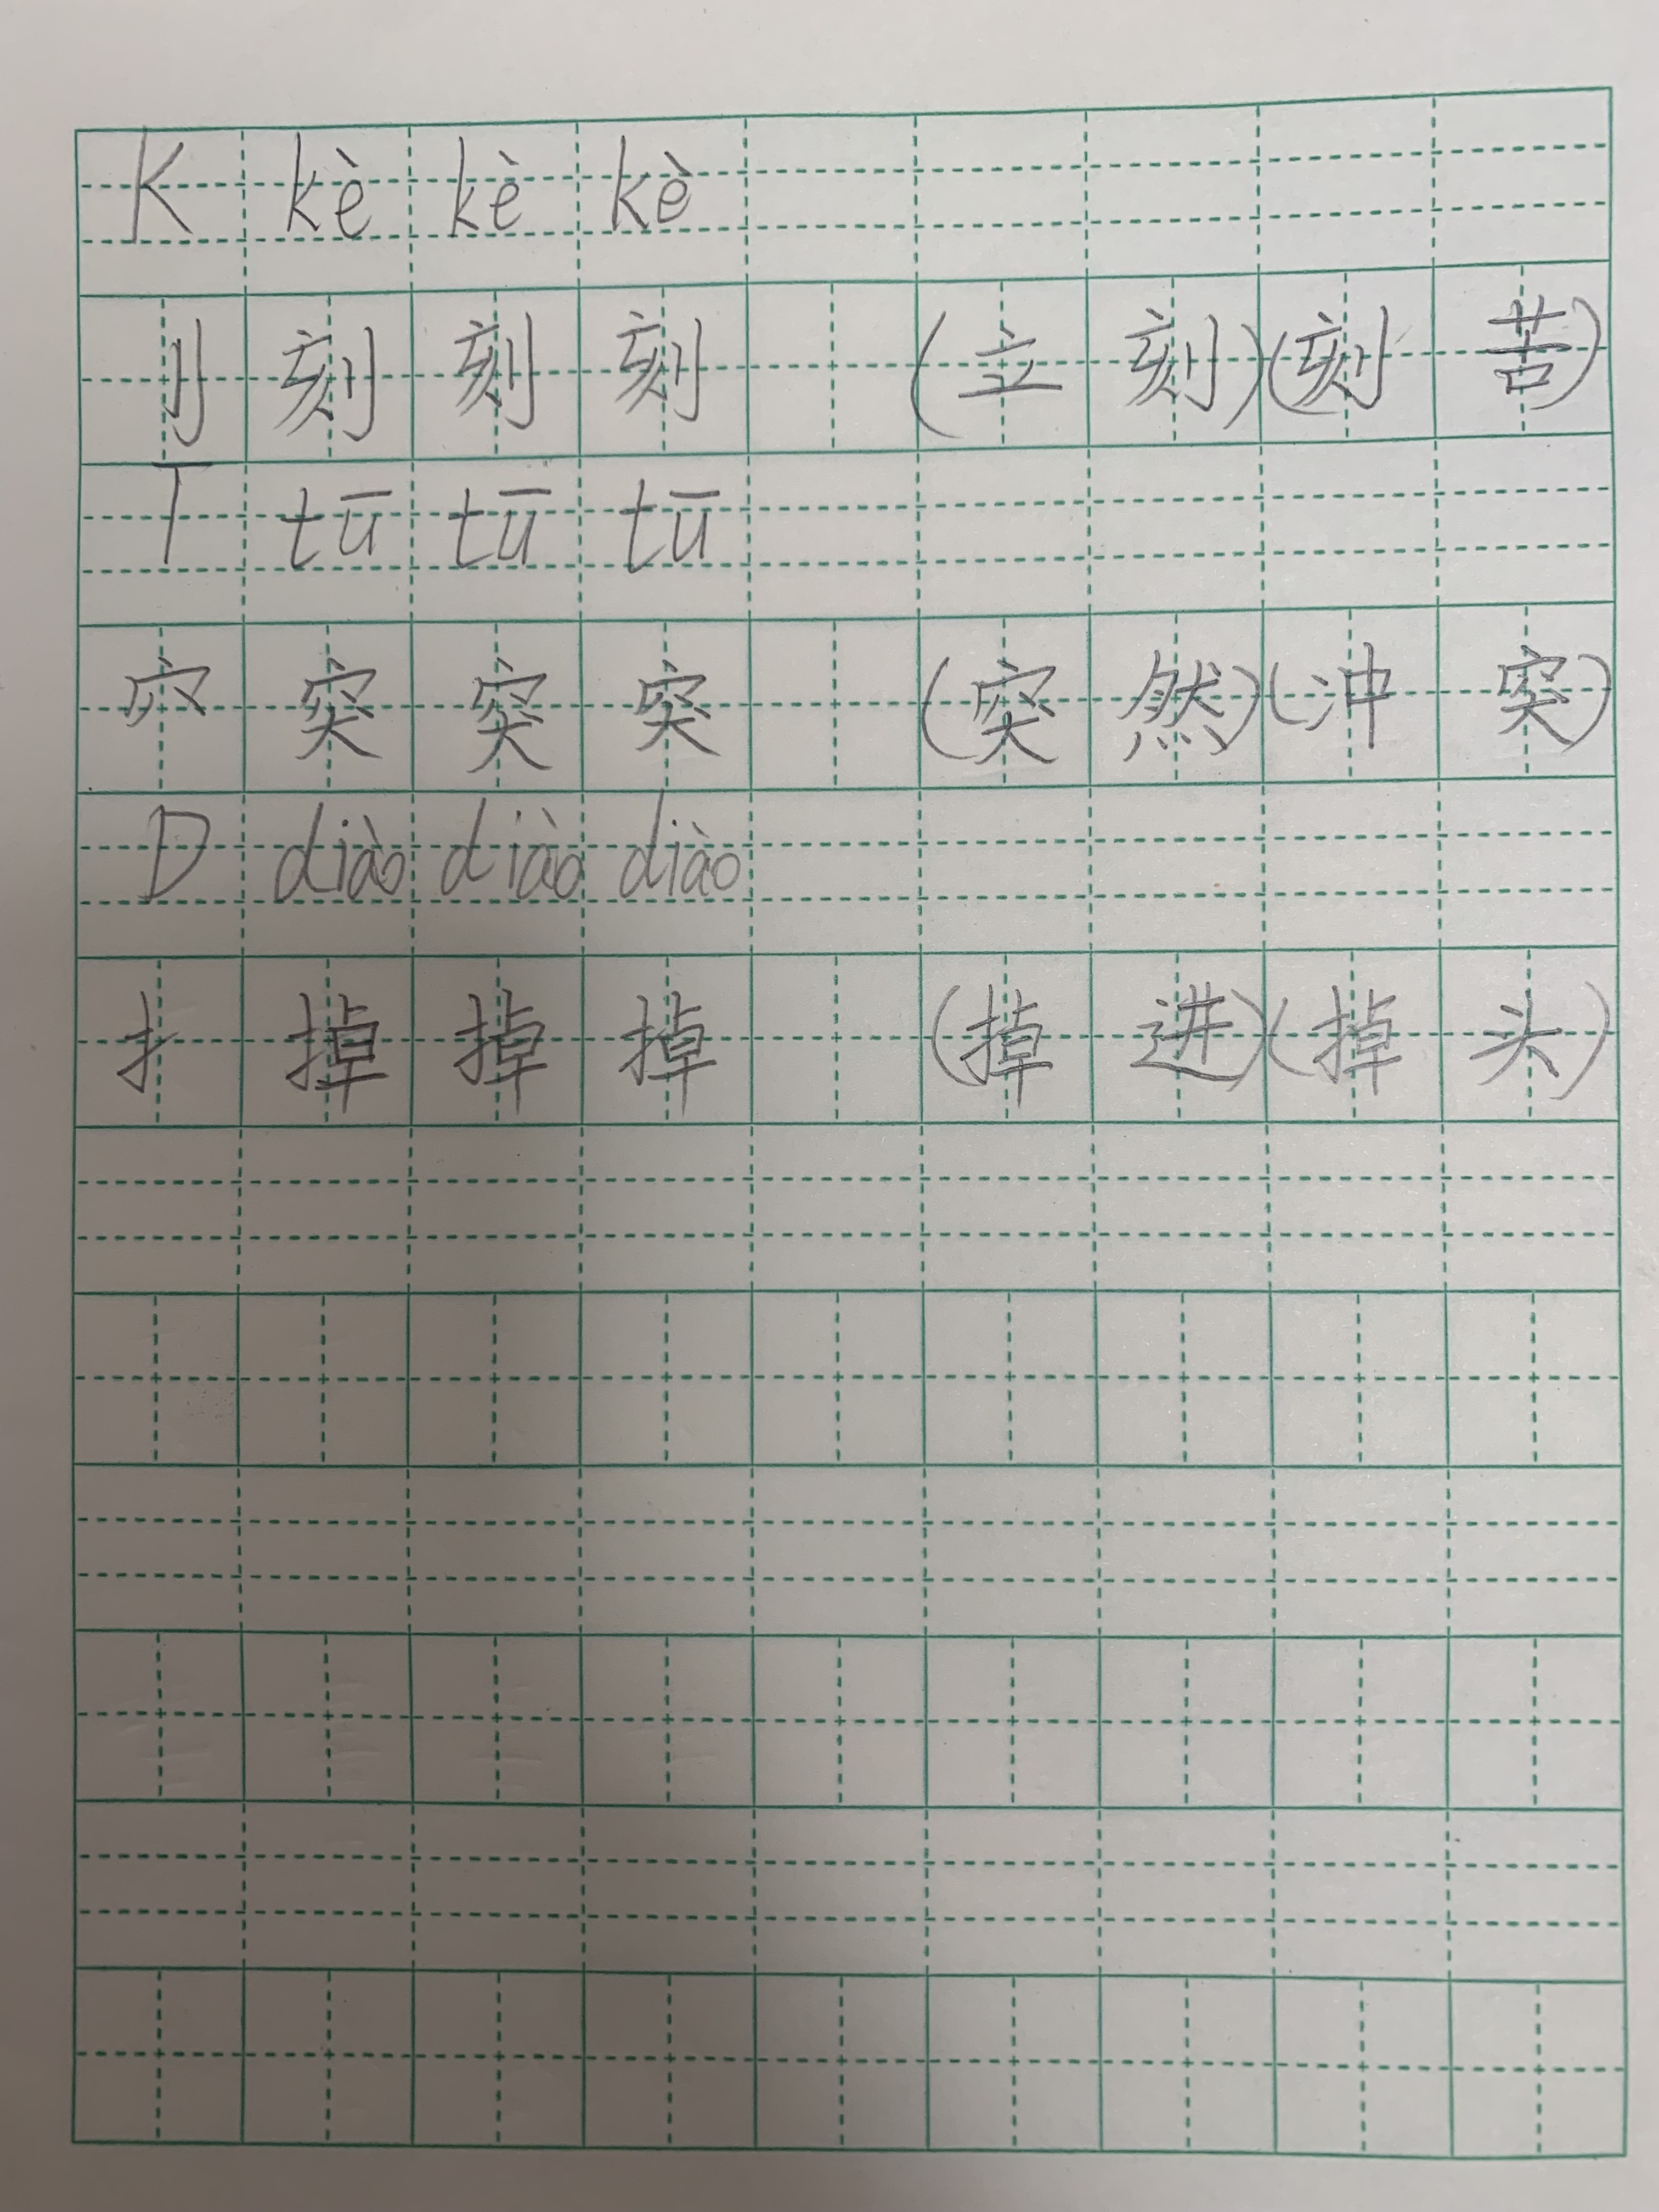 K kè kè kè
刂 刻 刻 刻 (立刻)(刻苦)
T tū tū tū
穴 突 突 突 (突然)(冲突)
D diào diào diào
扌 掉 掉 掉 (掉进)(掉头)